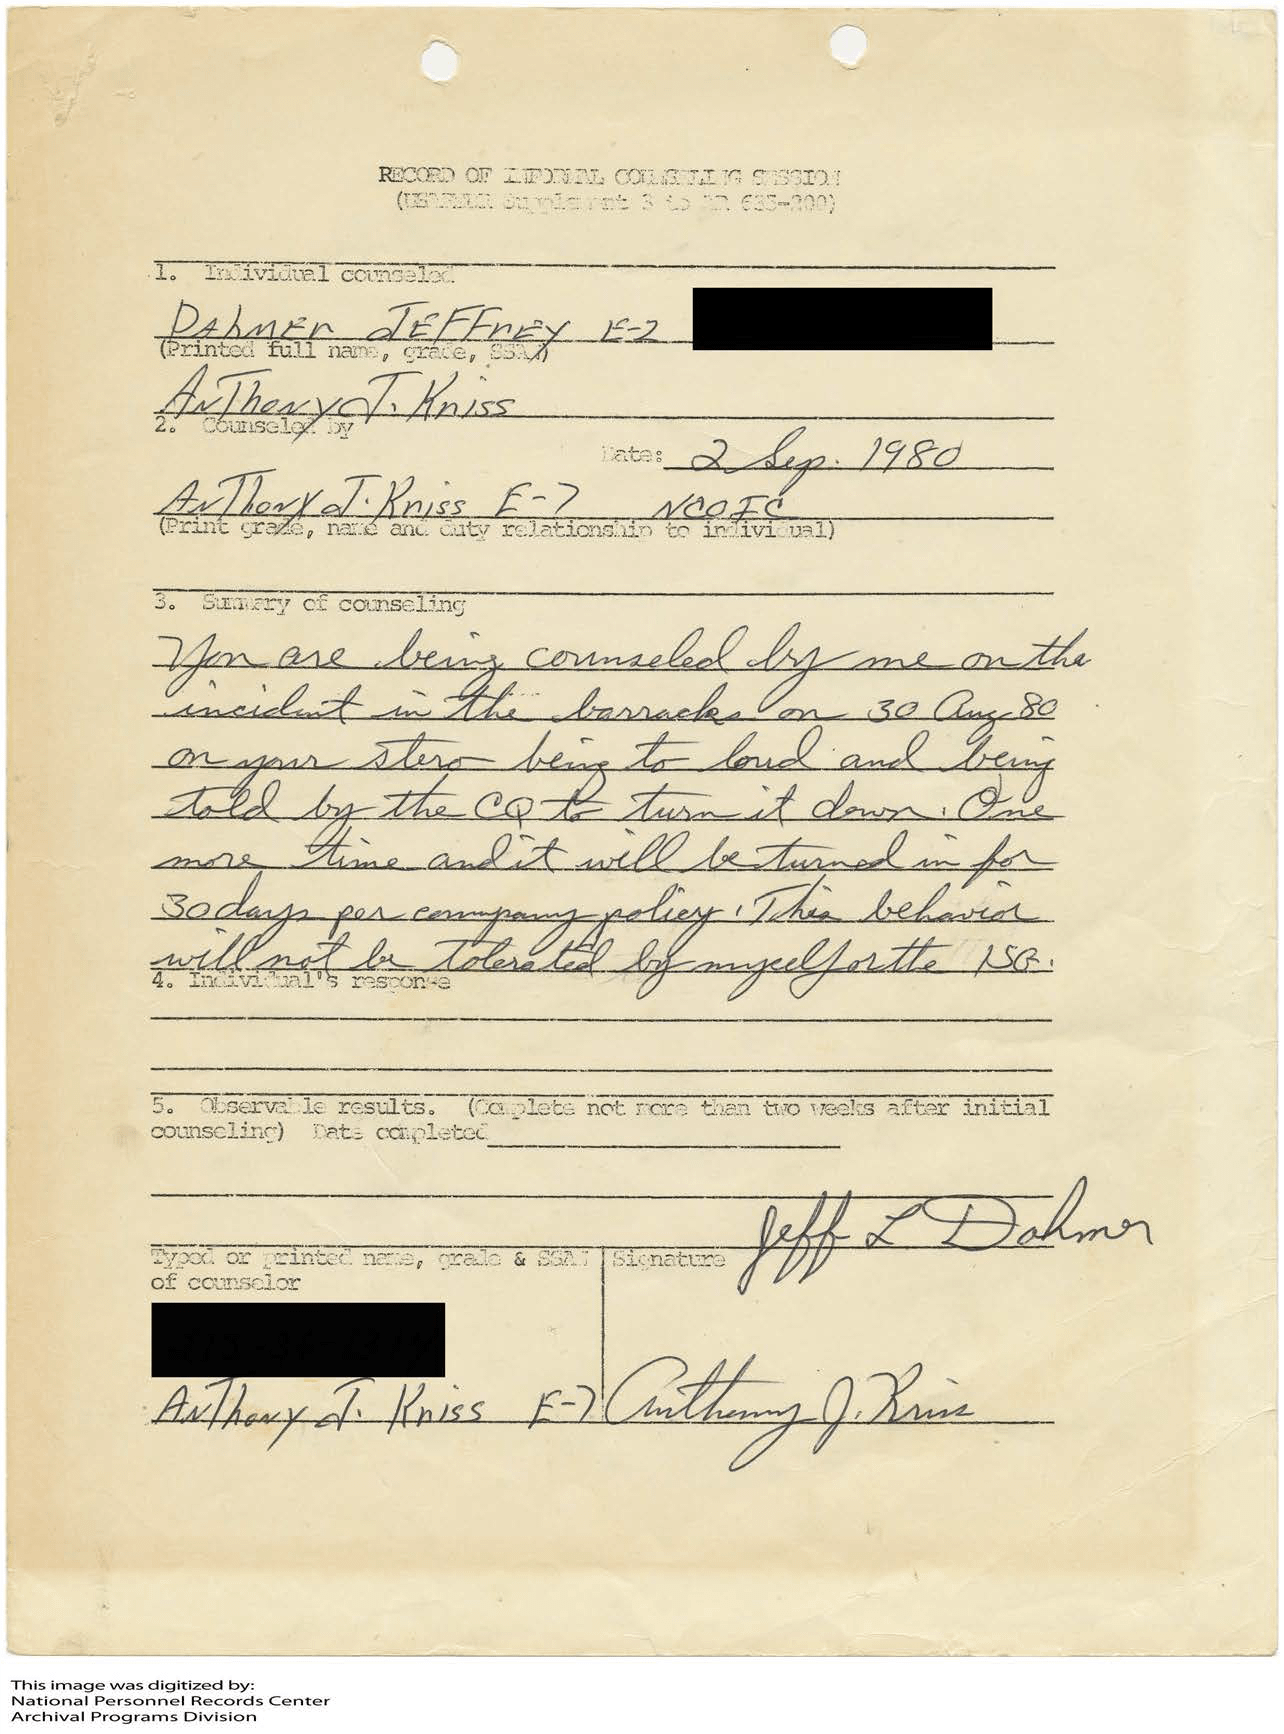 RECORD OF INFORMAL COUNSELING SESSION
(USAREUR Supplement 3 to AR 635-200)
1. Individual counseled
DAHMER JEFFREY E-2
(Printed full name, grade, SSAN)
AnThony J. Kniss
2. Counseled by
Date: 2 Sep. 1980
AnThony J. Kniss E-7 NCOIC
(Print grade, name and duty relationship to individual)
3. Summary of counseling
You are being counseled by me on the
incident in the barracks on 30 Aug 80
on your stero being to loud and being
told by the CQ to turn it down. One
more time and it will be turned in for
30 days per company policy. This behavior
will not be tolerated by myself or the 1SG.
4. Individual's response
5. Observable results. (Complete not more than two weeks after initial
counseling) Date completed
Jeff L Dahmer
Typed or printed name, grade & SSAN
of counselor
Signature
AnThony J. Kniss E-7
Anthony J. Kniss
This image was digitized by:
National Personnel Records Center
Archival Programs Division